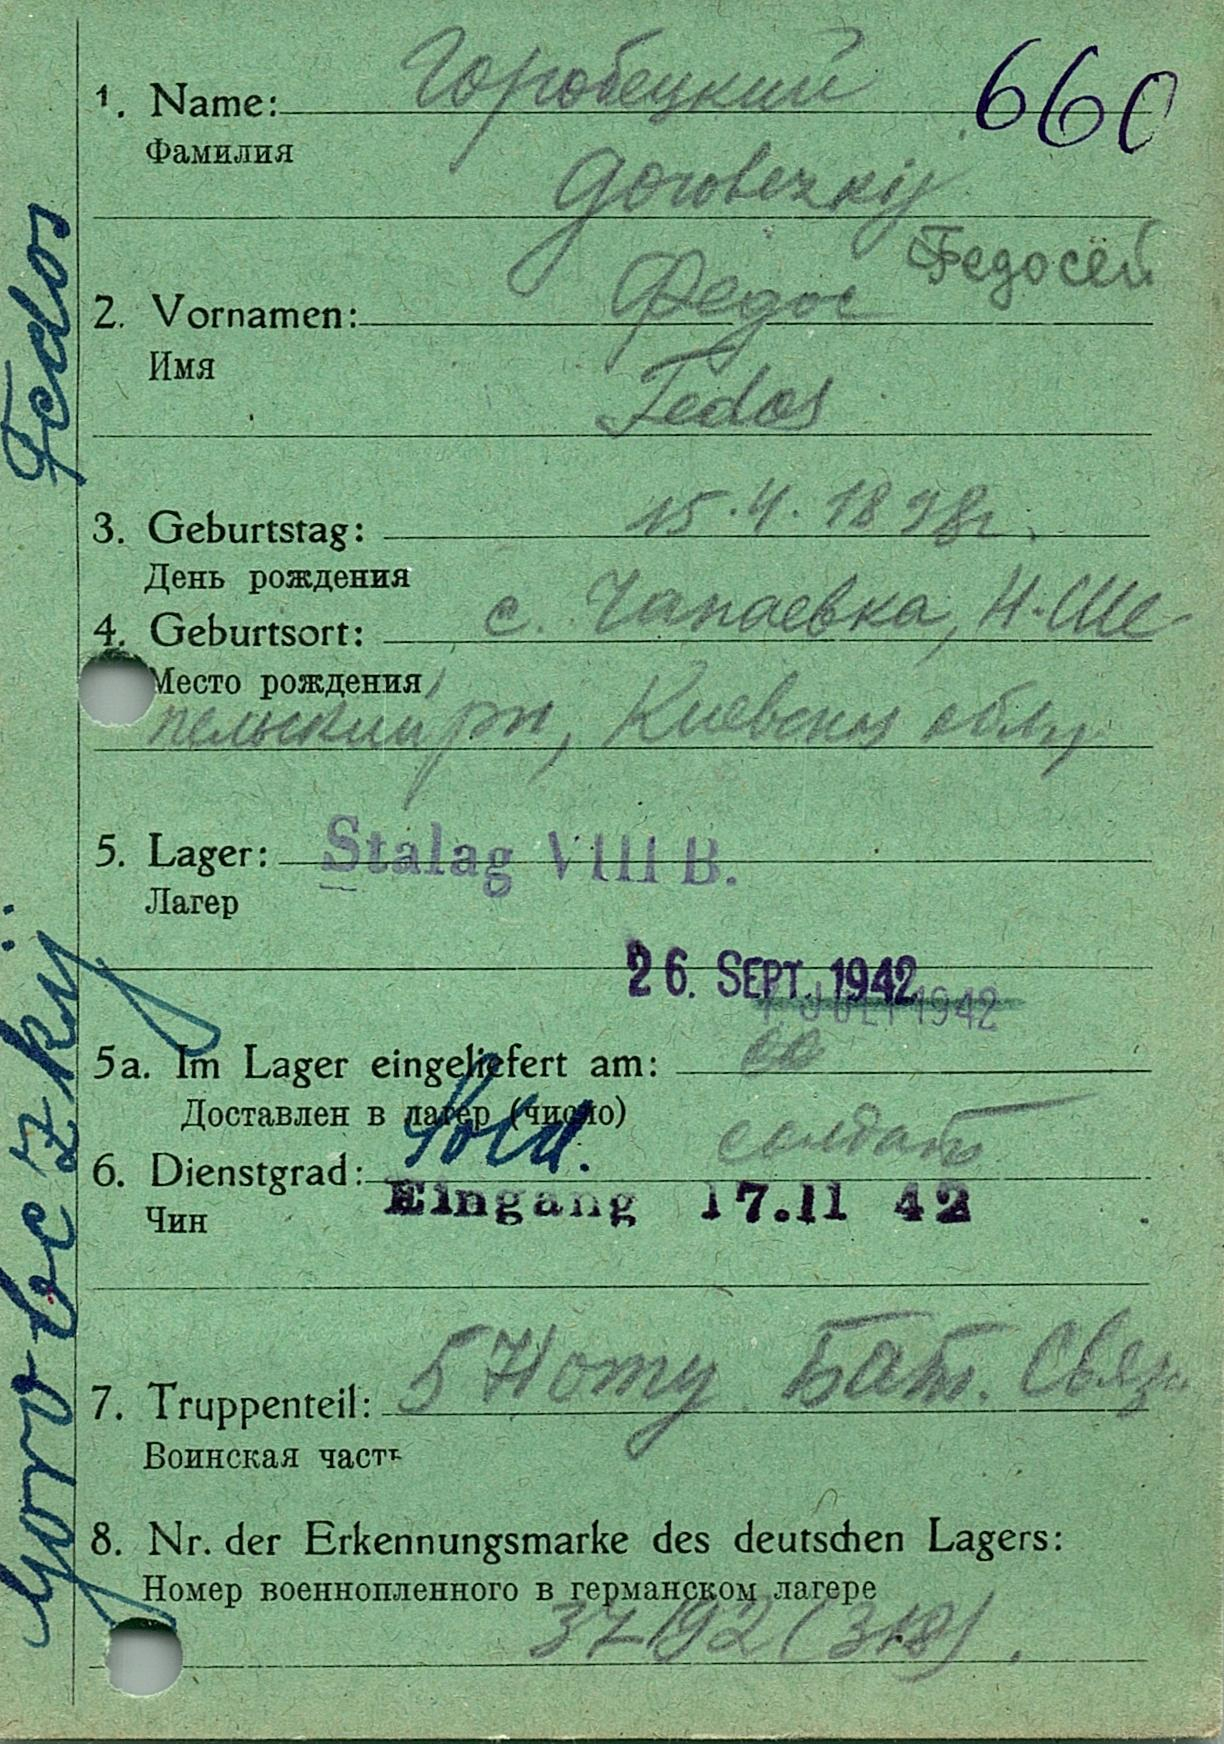 Горобецкий
660
1. Name:
Фамилия
Gorobezkij
Федосей
Федос
2. Vornamen:
Имя
Fedos
3. Geburtstag: 15.4.1898г.
День рождения
4. Geburtsort: с. Чапаевка, Н-Ше
Место рождения
пельский рн, Киевской обл
5. Lager: Stalag VIII B.
Лагер
26. SEPT. 1942
JULI 1942
5a. Im Lager eingeliefert am:
Доставлен в лагер (число)
Sold. солдат
6. Dienstgrad:
Чин
Eingang 17.11 42
7. Truppenteil: Бат. Связи
Воинская часть
8. Nr. der Erkennungsmarke des deutschen Lagers:
Номер военнопленного в германском лагере
37192 (318).
Gorobezkij Fedos